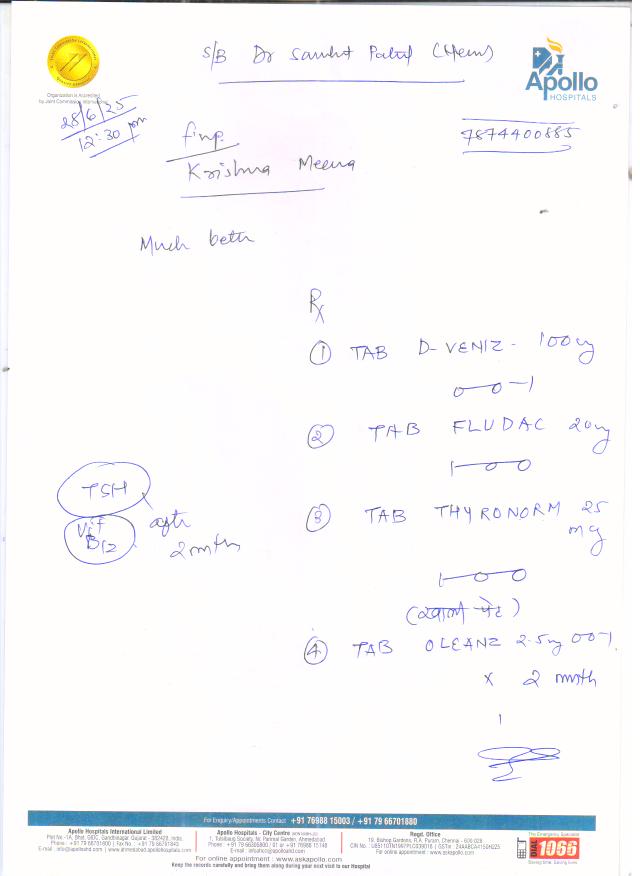 S/B Dr Sanket Patel (Mem)
Apollo
HOSPITALS
Organization is Accredited
by Joint Commission International
28/6/25
12:30 pm
7874400885
Krishna Meena
Much bettr
Rx
① TAB D-VENIZ - 100mg
0-0-1
② TAB FLUDAC 20mg
1-0-0
③ TAB THYRONORM 25
mcg
1-0-0
(खाली पेट)
TSH
Vit
B12
after
2 month
④ TAB OLEANZ 2.5mg 00-1
x 2 month
For Enquiry/Appointments Contact +91 76988 15003 / +91 79 66701880
Apollo Hospitals International Limited
Plot No.-1A, Bhat, GIDC, Gandhinagar, Gujarat - 382428, India.
Phone : +91 79 66701800 | Fax No. : +91 79 66701843
E-mail : info@apolloahd.com | www.ahmedabad.apollohospitals.com
Apollo Hospitals - City Centre
1, Tulsibaug Society, Nr. Parimal Garden, Ahmedabad
Phone : +91 79 66305800 / 01 or +91 76988 15148
E-mail : infoahcc@apolloahd.com
Regd. Office
19, Bishop Gardens, R.A. Puram, Chennai - 600 028.
For online appointment : www.apollohospitals.com
The Emergency Specialist
DIAL 1066
Saving time. Saving lives.
For online appointment : www.askapollo.com
Keep the records carefully and bring them along during your next visit to our Hospital